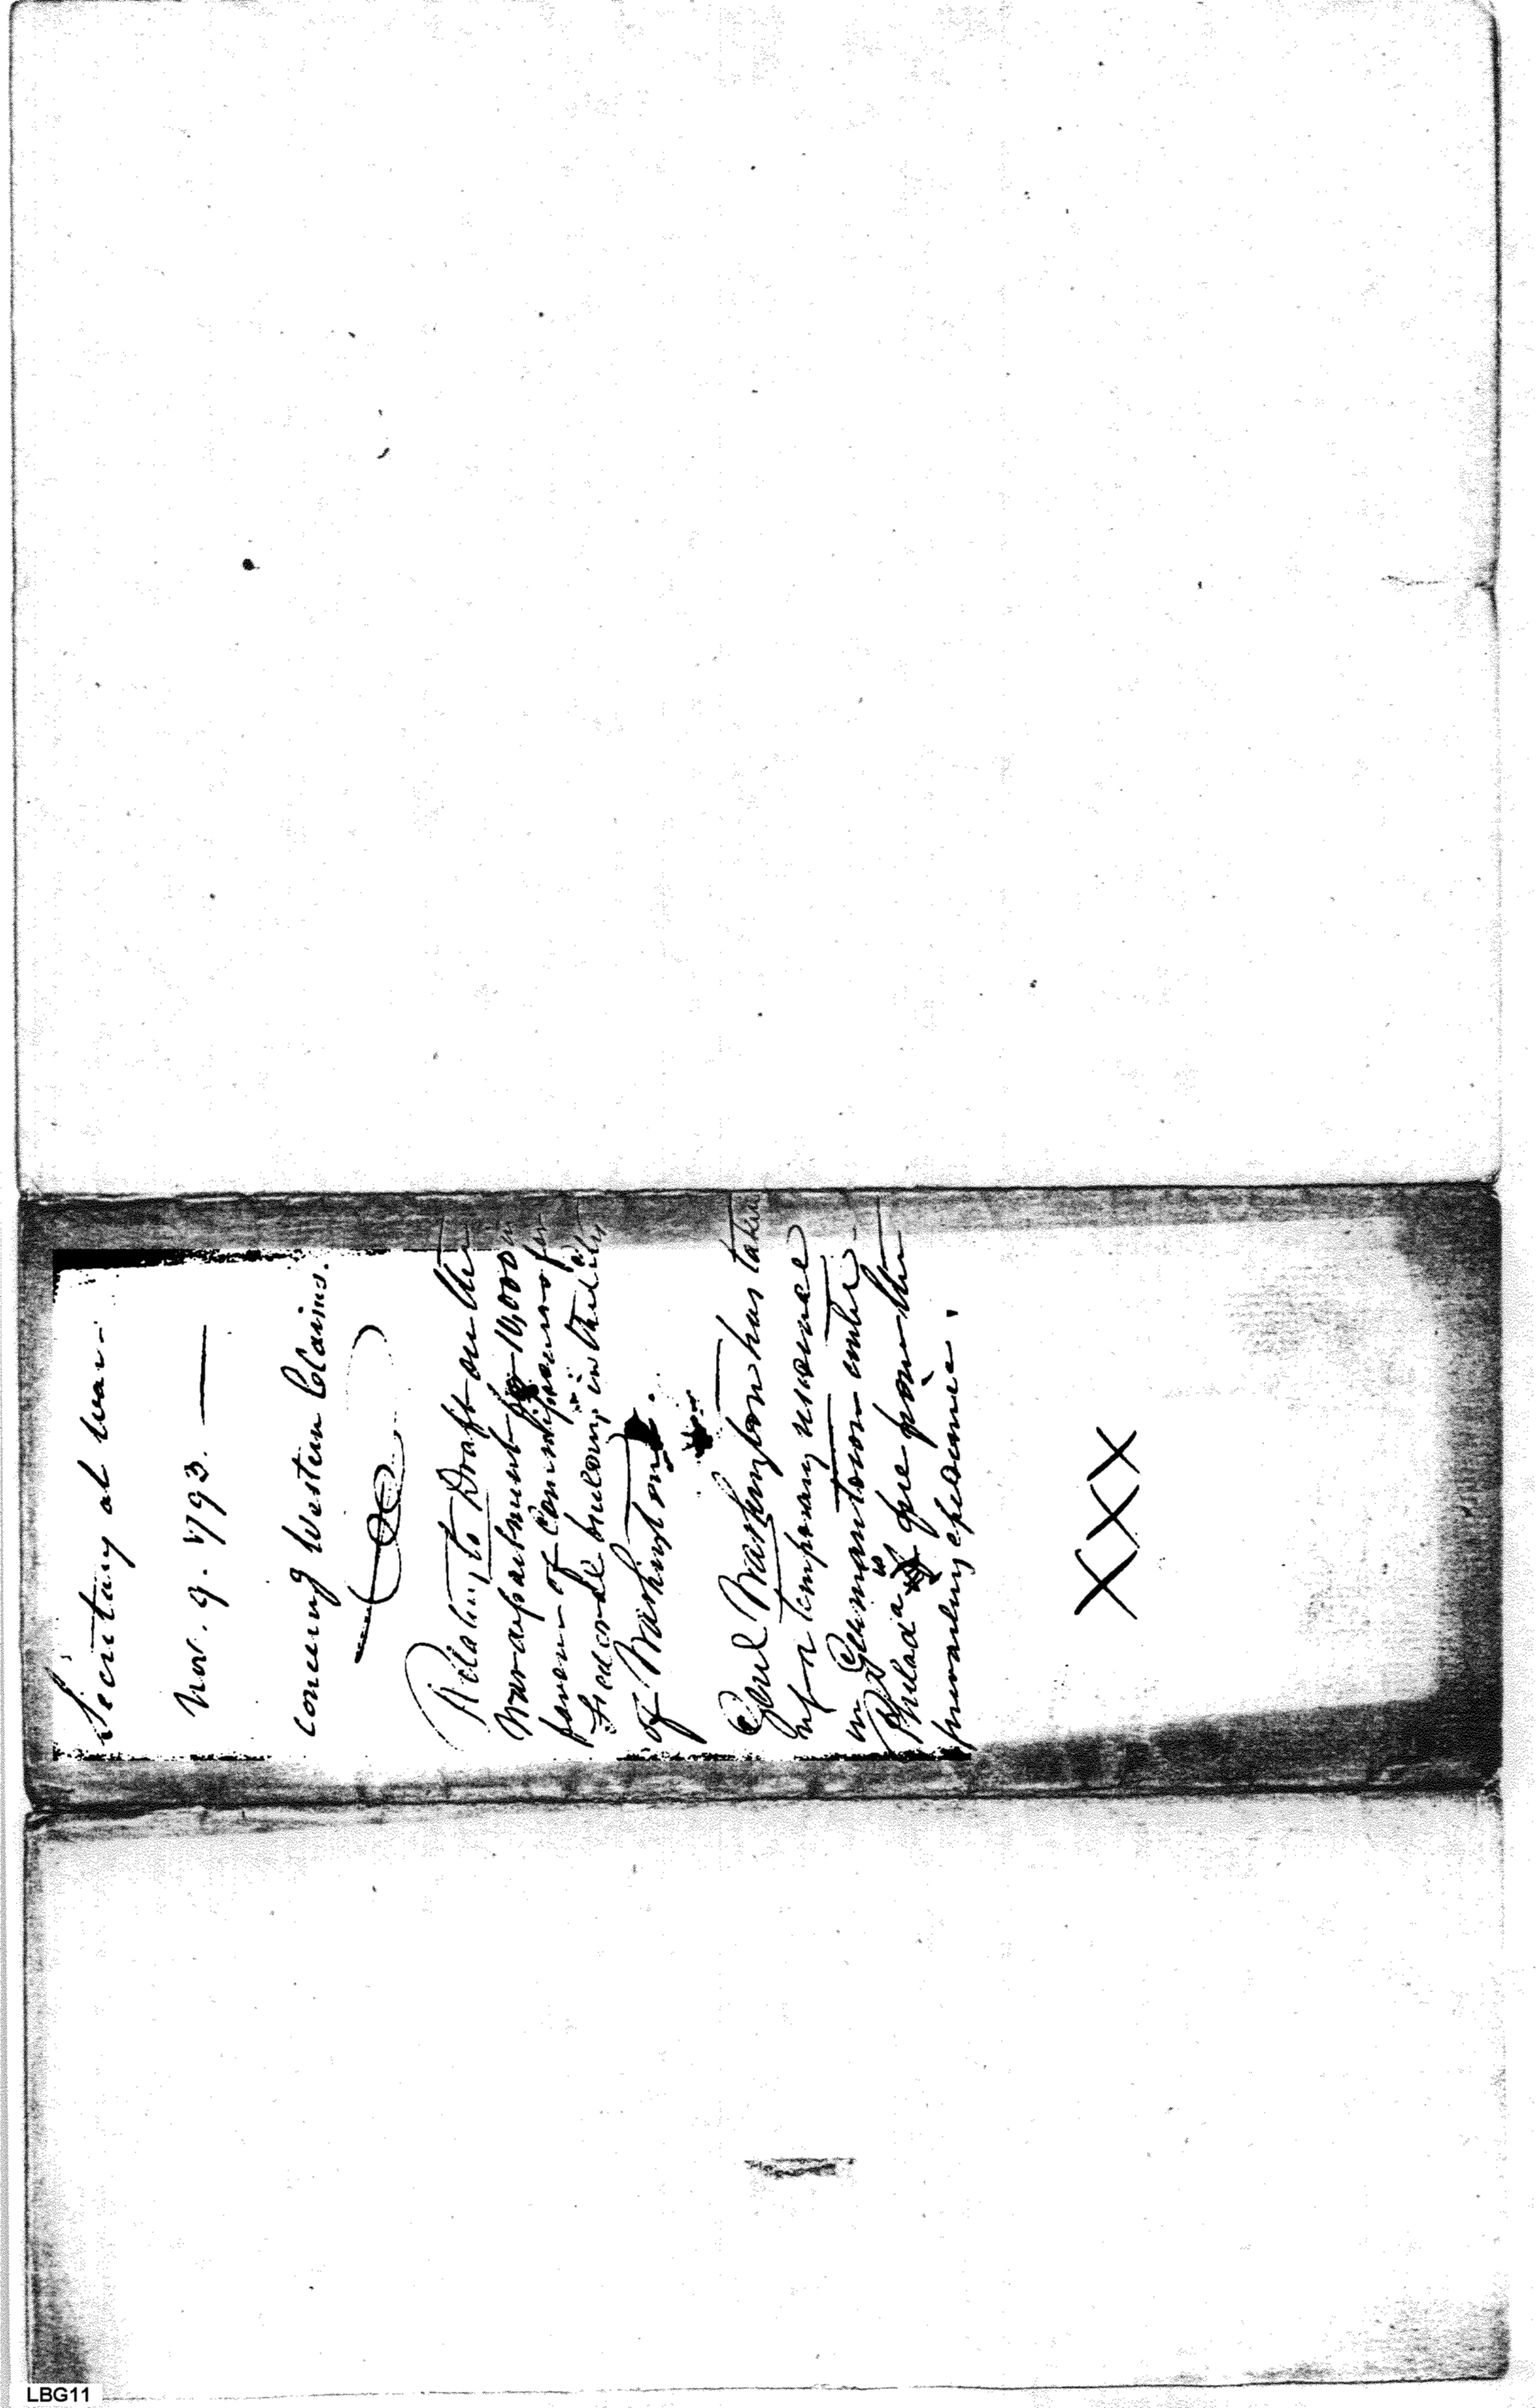 Secretary at war.
Nov. 9. 1793. —
concerning Western Claims.
Relating to Draft on the
War department for 10,000 in
favour of Commissioners for
Federal building in the City
of Washington.
Genl Washington has taken
up a temporary residence
in Germantown
Philada is free from the
prevailing epidemic.
XXX
LBG11